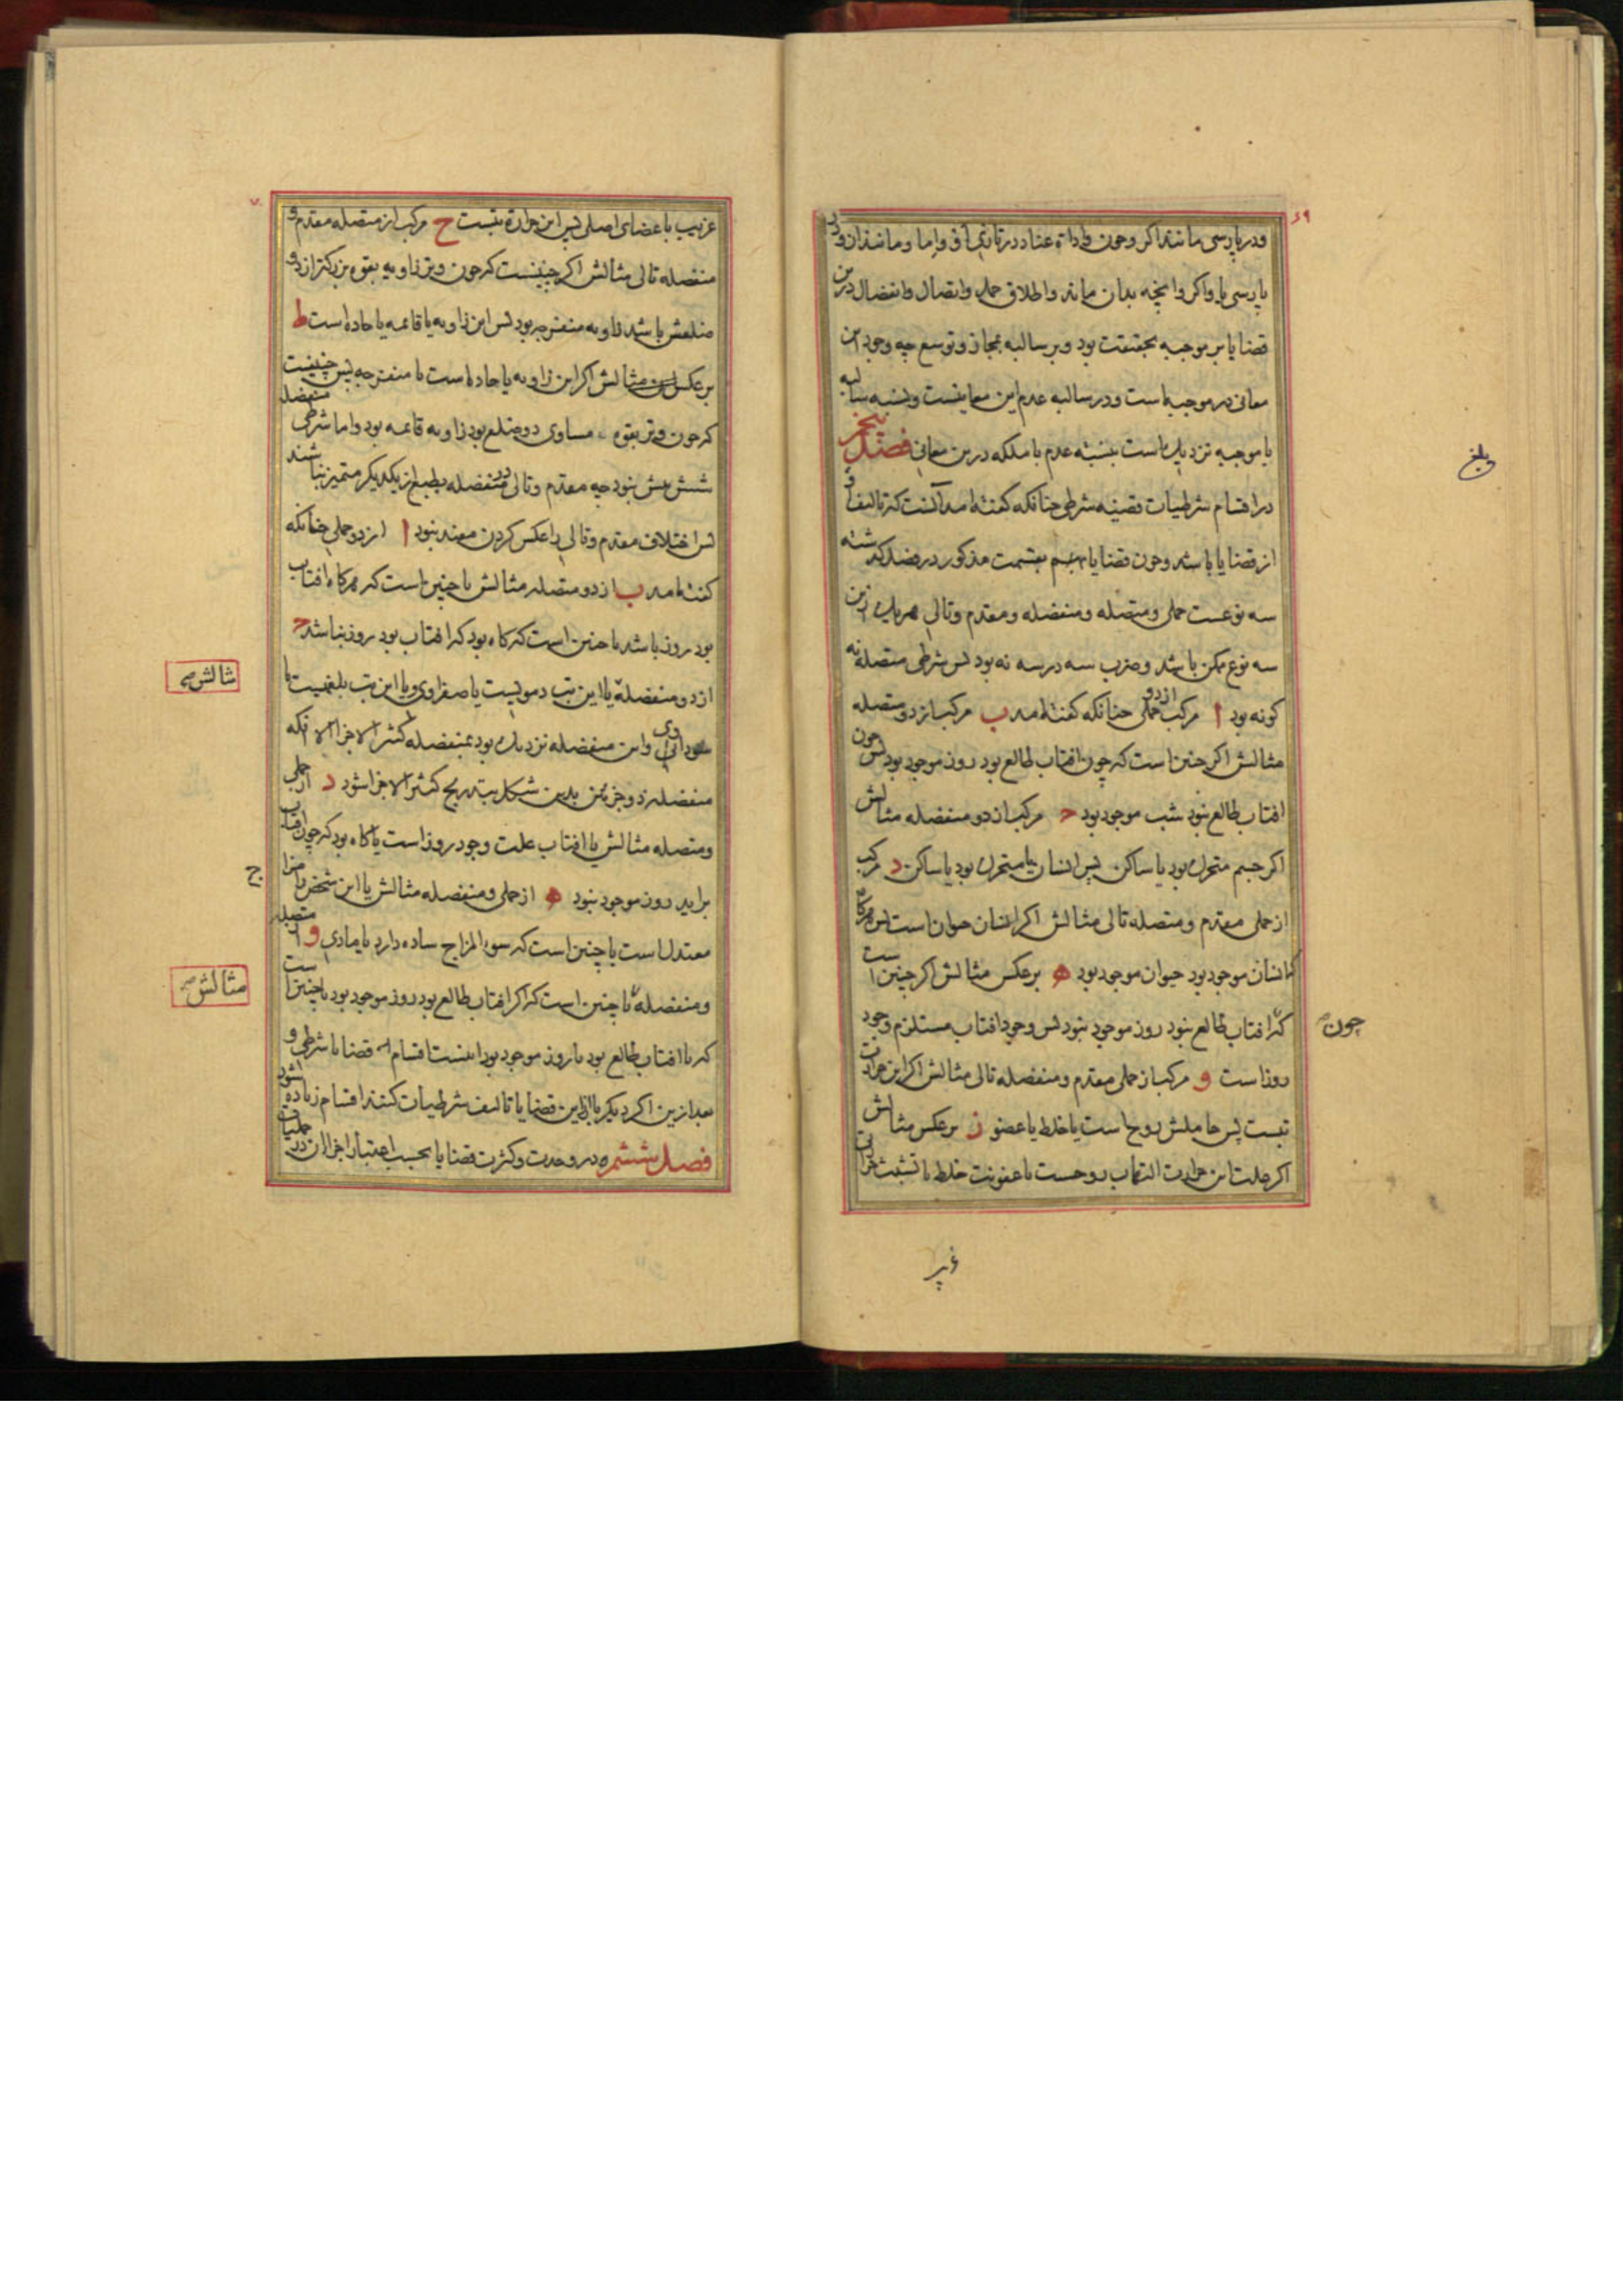 ۶۹
ودر پارسی مانند اکر وچون واداة عناد در تازی او واما ومانند ان ودر
پارسی یا واکر وانچه بدان ماند واطلاق حمل واتصال وانفصال درین
قضایا بر موجبه بحقیقت بود وبر سالبه بمجاز وتوسع چه وجود این
معانی در موجبه است ودر سالبه عدم این معانیست ونسبه سالبه
با موجبه نزدیک است بنسبه عدم با ملکه درین معانی فصل پنجم
در اقسام شرطیات قضیه شرطی چنانکه کفته امد انست که تالیف او
از قضایا باشد وچون قضایا بقسمت مذکور در فصل کذشته
سه نوعست حملی ومتصله ومنفصله ومقدم وتالی هریک ازین
سه نوع ممکن باشد وضرب سه در سه نه بود پس شرطی متصله نه
کونه بود ا مرکب از دو حملی چنانکه کفته امد ب مرکب از دو متصله
مثالش اکر چنین است که چون افتاب طالع بود روز موجود بود پس چون
افتاب طالع نبود شب موجود بود ج مرکب از دو منفصله مثالش
اکر جسم متحرک بود یا ساکن پس انسان یا متحرک بود یا ساکن د مرکب
از حملی مقدم ومتصله تالی مثالش اکر انسان حیوان است پس هرکاه
که انسان موجود بود حیوان موجود بود ه برعکس مثالش اکر چنین است
که افتاب طالع نبود روز موجود نبود پس وجود افتاب مستلزم وجود
چون
روز است و مرکب از حملی مقدم ومنفصله تالی مثالش اکر این حرارت
تبست پس حاملش روح است یا خلط یا عضو ز برعکس مثالش
اکر علت این حرارت التهاب روحست یا عفونت خلط یا تشبث حرارتی
غریب
وبلغ
۷۰
غریب باعضای اصلی پس این حرارة تبست ح مرکب از متصله مقدم و
منفصله تالی مثالش اکر چنینست که چون وتر زاویه بقوه بزرکتر از دو
ضلعش باشد زاویه منفرجه بود پس این زاویه یا قائمه یا حاده است ط
برعکس مثالش اکر این زاویه یا حاده است یا منفرجه پس چنینست
که چون وتر بقوه مساوی دو ضلع بود زاویه قائمه بود واما شرطی منفصله
شش بیش نبود چه مقدم وتالی در منفصله بطبع از یکدیکر متمیز نباشند
پس اختلاف مقدم وتالی را عکس کردن مفید نبود ا از دو حملی چنانکه
کفته امد ب از دو متصله مثالش یا چنین است که هرکاه افتاب
بود روز باشد یا چنین است که کاه بود که افتاب بود روز نباشد ج
مثالش صح
از دو منفصله یا این تب دمویست یا صفراوی ویا این تب بلغمیست یا
سوداوی واین منفصله نزدیک بود بمنفصله کثیر الاجزا الا انکه
منفصله ذو جزئین بدین شکل بتدریج کثیر الاجزا شود د از حملی
ومتصله مثالش یا افتاب علت وجود روز است یا کاه بود که چون افتاب
براید روز موجود نبود ه از حملی ومنفصله مثالش یا این شخص را مزاج
معتدل است یا چنین است که سوء المزاج ساده دارد یا مادی و از متصله
مثالش صح
ومنفصله یا چنین است که اکر افتاب طالع بود روز موجود بود یا چنین است
که یا افتاب طالع بود یا روز موجود بود اینست اقسام قضایا شرطی و
بعد ازین اکر دیکر باره ازین قضایا تالیف شرطیات کنند اقسام زیاده شود
فصل ششم در وحدت وکثرت قضایا بحسب اعتبار اجزا ان در حملیات